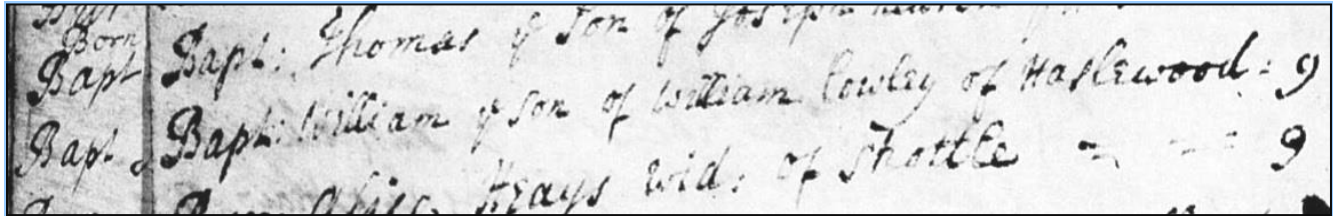 Born
Bapt Bapt: Thomas ye Son of Joseph
Bapt Bapt: William ye Son of William Cowley of Haslewood: 9
Heays wid: of Shottle 9